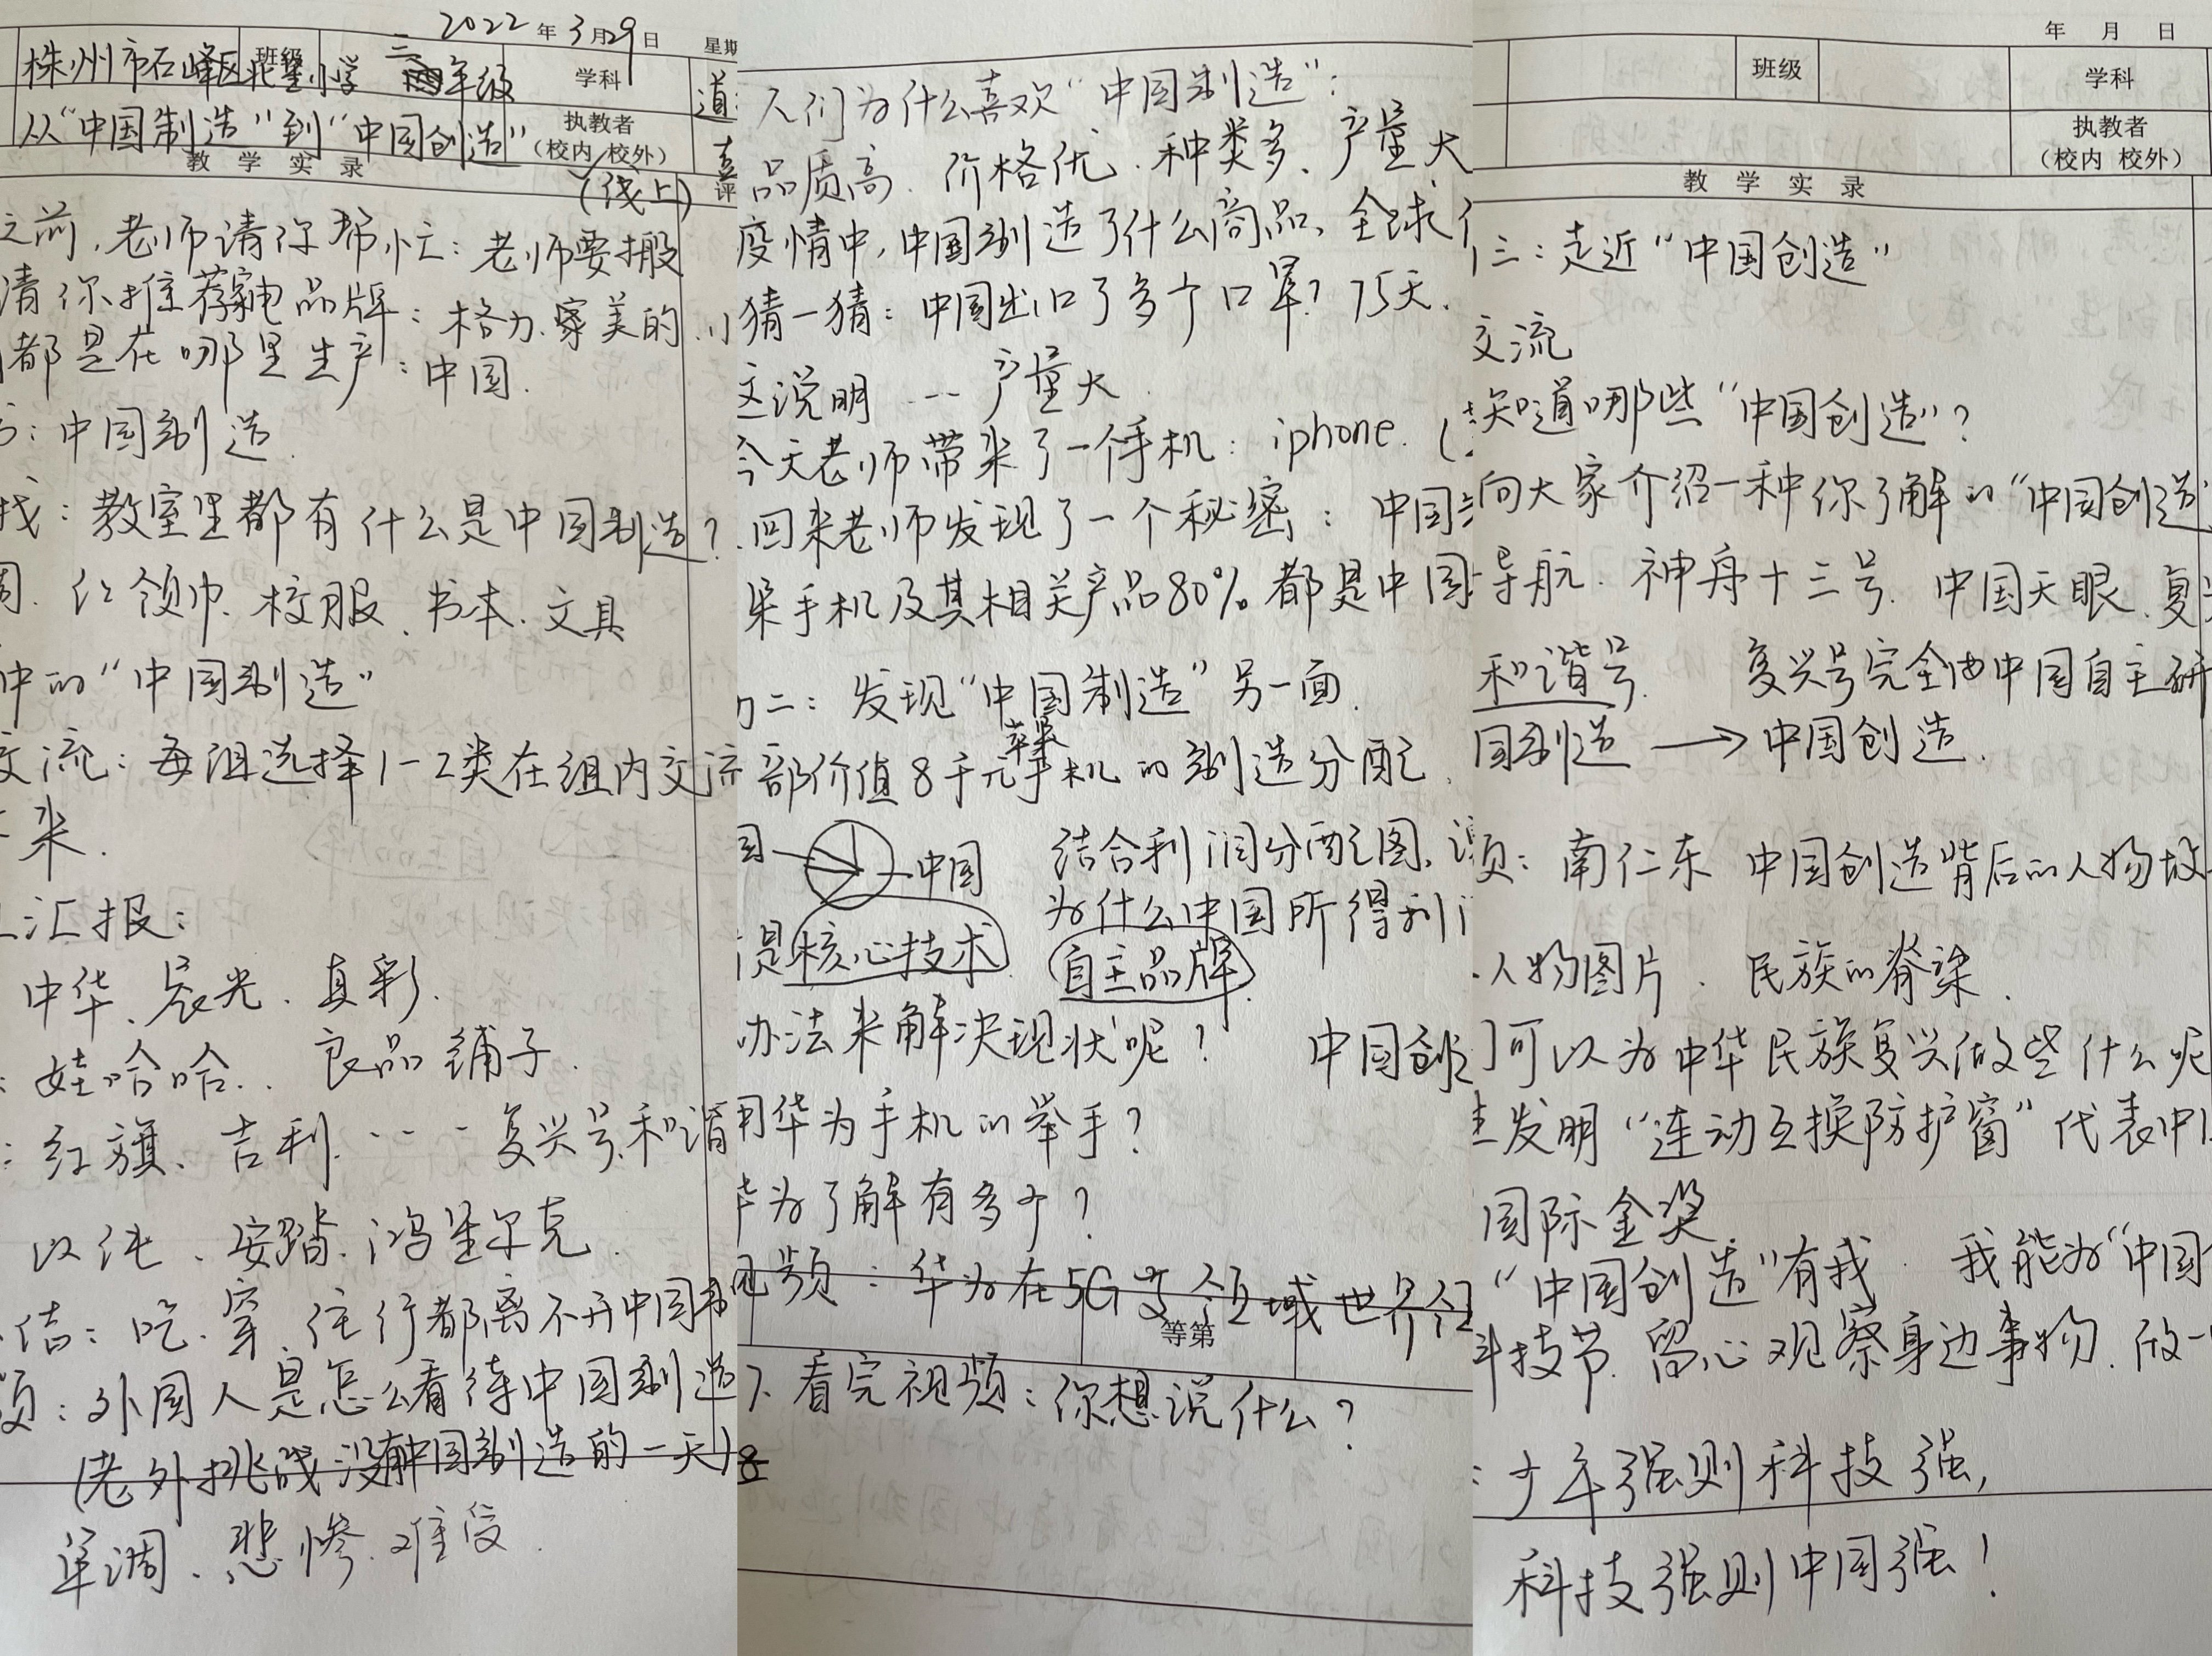 2022 年 3 月 29 日 星期
株洲市石峰区北星小学 班级 三年级 学科 道
从“中国制造”到“中国创造” 执教者
(校内 校外)
教 学 实 录
(线上)
之前,老师请你帮忙:老师要搬
请你推荐家电品牌:格力、美的、小
都是在哪里生产:中国.
:中国制造.
找:教室里都有什么是中国制造?
红领巾、校服、书本、文具
中的“中国制造”
交流:每组选择1-2类在组内交流
来.
汇报:
中华、晨光、真彩.
:娃哈哈.. 良品铺子.
:红旗、吉利. … 复兴号.和谐
以纯、安踏、鸿星尔克.
结:吃、穿、住行都离不开中国制
频:外国人是怎么看待中国制造
(老外挑战没有中国制造的一天)
单调、悲惨、难受.
人们为什么喜欢“中国制造”:
品质高、价格优、种类多、产量大
疫情中,中国制造了什么商品、全球
猜一猜:中国出口了多少个口罩?75天.
这说明 … 产量大.
今天老师带来了一个手机:iphone.
回来老师发现了一个秘密:中国
果手机及其相关产品80%都是中国
二:发现“中国制造”另一面.
部价值8千元苹果手机的制造分配.
国 中国 结合利润分配图,
为什么中国所得利
是核心技术. 自主品牌.
办法来解决现状呢? 中国创
用华为手机的举手?
华为了解有多少?
视频:华为在5G领域世界
等第
看完视频:你想说什么?
年 月 日
班级 学科
执教者
(校内 校外)
教 学 实 录
三:走近“中国创造”
交流
知道哪些“中国创造”?
向大家介绍一种你了解的“中国创造
导航、神舟十三号、中国天眼、复
和谐号. 复兴号完全由中国自主研
国制造 → 中国创造.
频:南仁东 中国创造背后的人物故
人物图片. 民族的脊梁.
可以为中华民族复兴做些什么呢
发明“连动互换防护窗”代表中
国际金奖
“中国创造”有我. 我能为“中国
科技节.留心观察身边事物.做一
:少年强则科技强,
科技强则中国强!